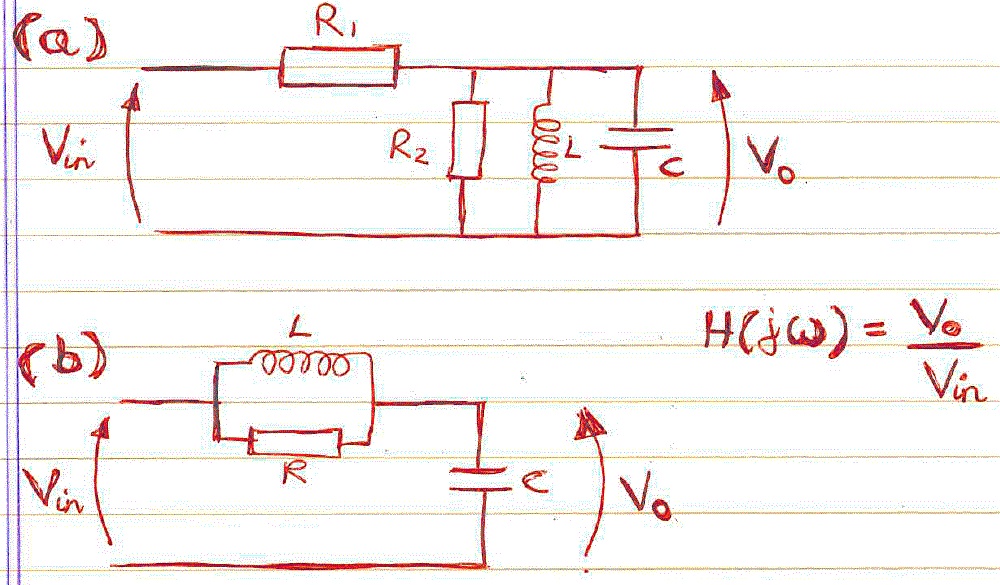 (a)
R1
Vin
R2
L
C
Vo
(b)
L
H(jω) = Vo / Vin
R
Vin
C
Vo